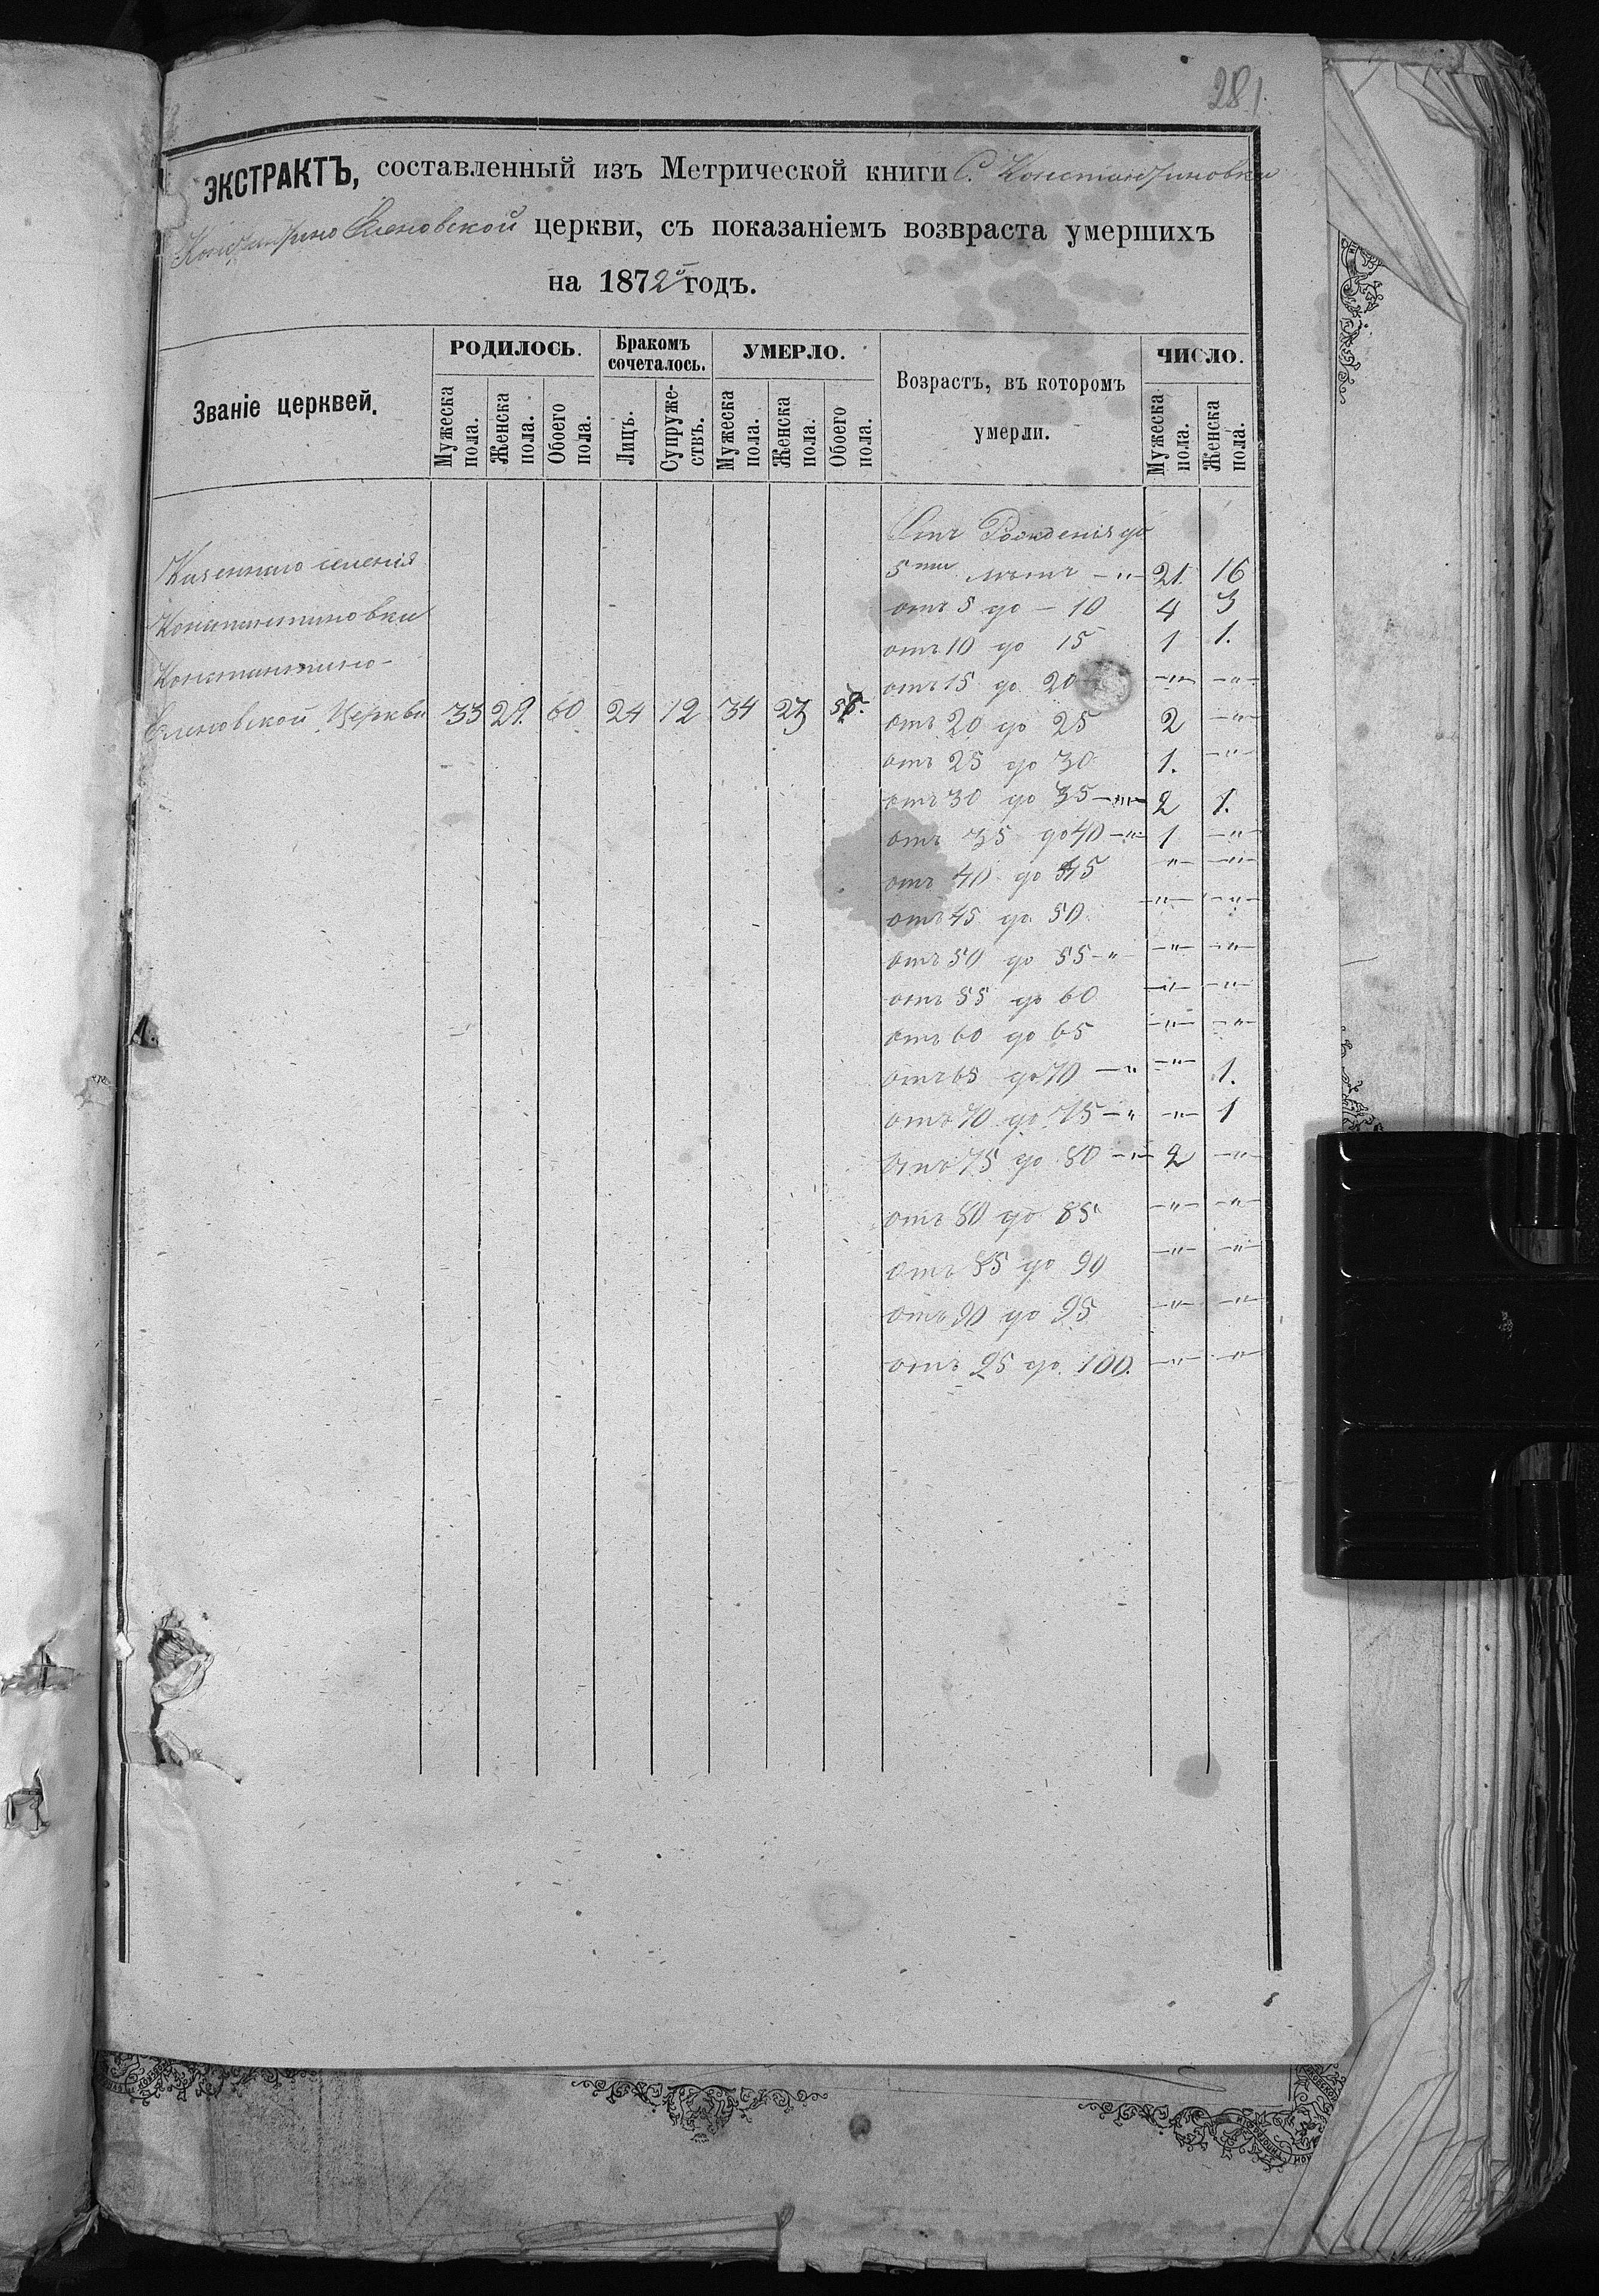 281.
ЭКСТРАКТЪ, составленный изъ Метрической книги С. Константиновки
Константино Еленовской церкви, съ показаніемъ возвраста умершихъ
на 1872й годъ.
Званіе церквей.
РОДИЛОСЬ.
Бракомъ сочеталось.
УМЕРЛО.
Возрастъ, въ которомъ умерли.
ЧИСЛО.
Мужеска пола.
Женска пола.
Обоего пола.
Лицъ.
Супружествъ.
Мужеска пола.
Женска пола.
Обоего пола.
Мужеска пола.
Женска пола.
Казеннаго селенія
Константиновки
Константино-
Еленовской Церкви 33 29. 60 24 12 34 23
Отъ Рожденія до
5ти лѣтъ —"— 21. 16
отъ 5 до — 10 4 3
отъ 10 до 15 1 1.
отъ 15 до 20 —"— —"—
отъ 20 до 25 2 —"—
отъ 25 до 30 1. —"—
отъ 30 до 35 —"— 2 1.
отъ 35 до 40 —"— 1 —"—
отъ 40 до 45 "— —"—
отъ 45 до 50 —"— —"—
отъ 50 до 55 —" —"— —"—
отъ 55 до 60 —"— —"—
отъ 60 до 65 —"— —"—
отъ 65 до 70 —" —"— 1.
отъ 70 до 75 —" —"— 1
отъ 75 до 80 —"— 2 —"—
отъ 80 до 85 —"— —"—
отъ 85 до 90 —"— —"—
отъ 90 до 95 —"— —"—
отъ 95 до 100. —"— —"—